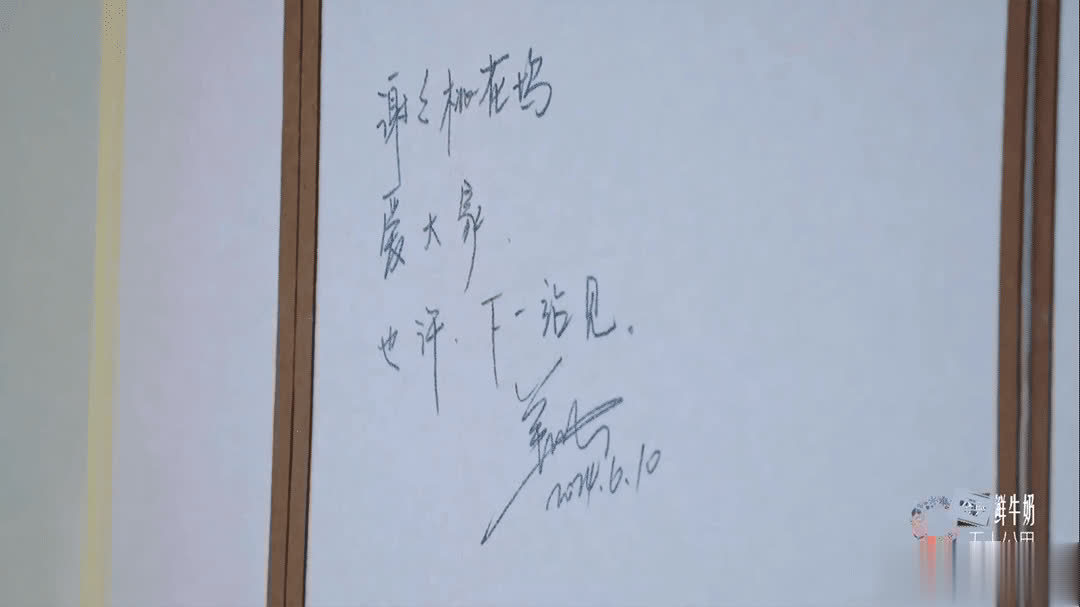 谢谢桃花坞
爱大家.
也许.下一站见.
2024.6.10
鲜牛奶
五十公里